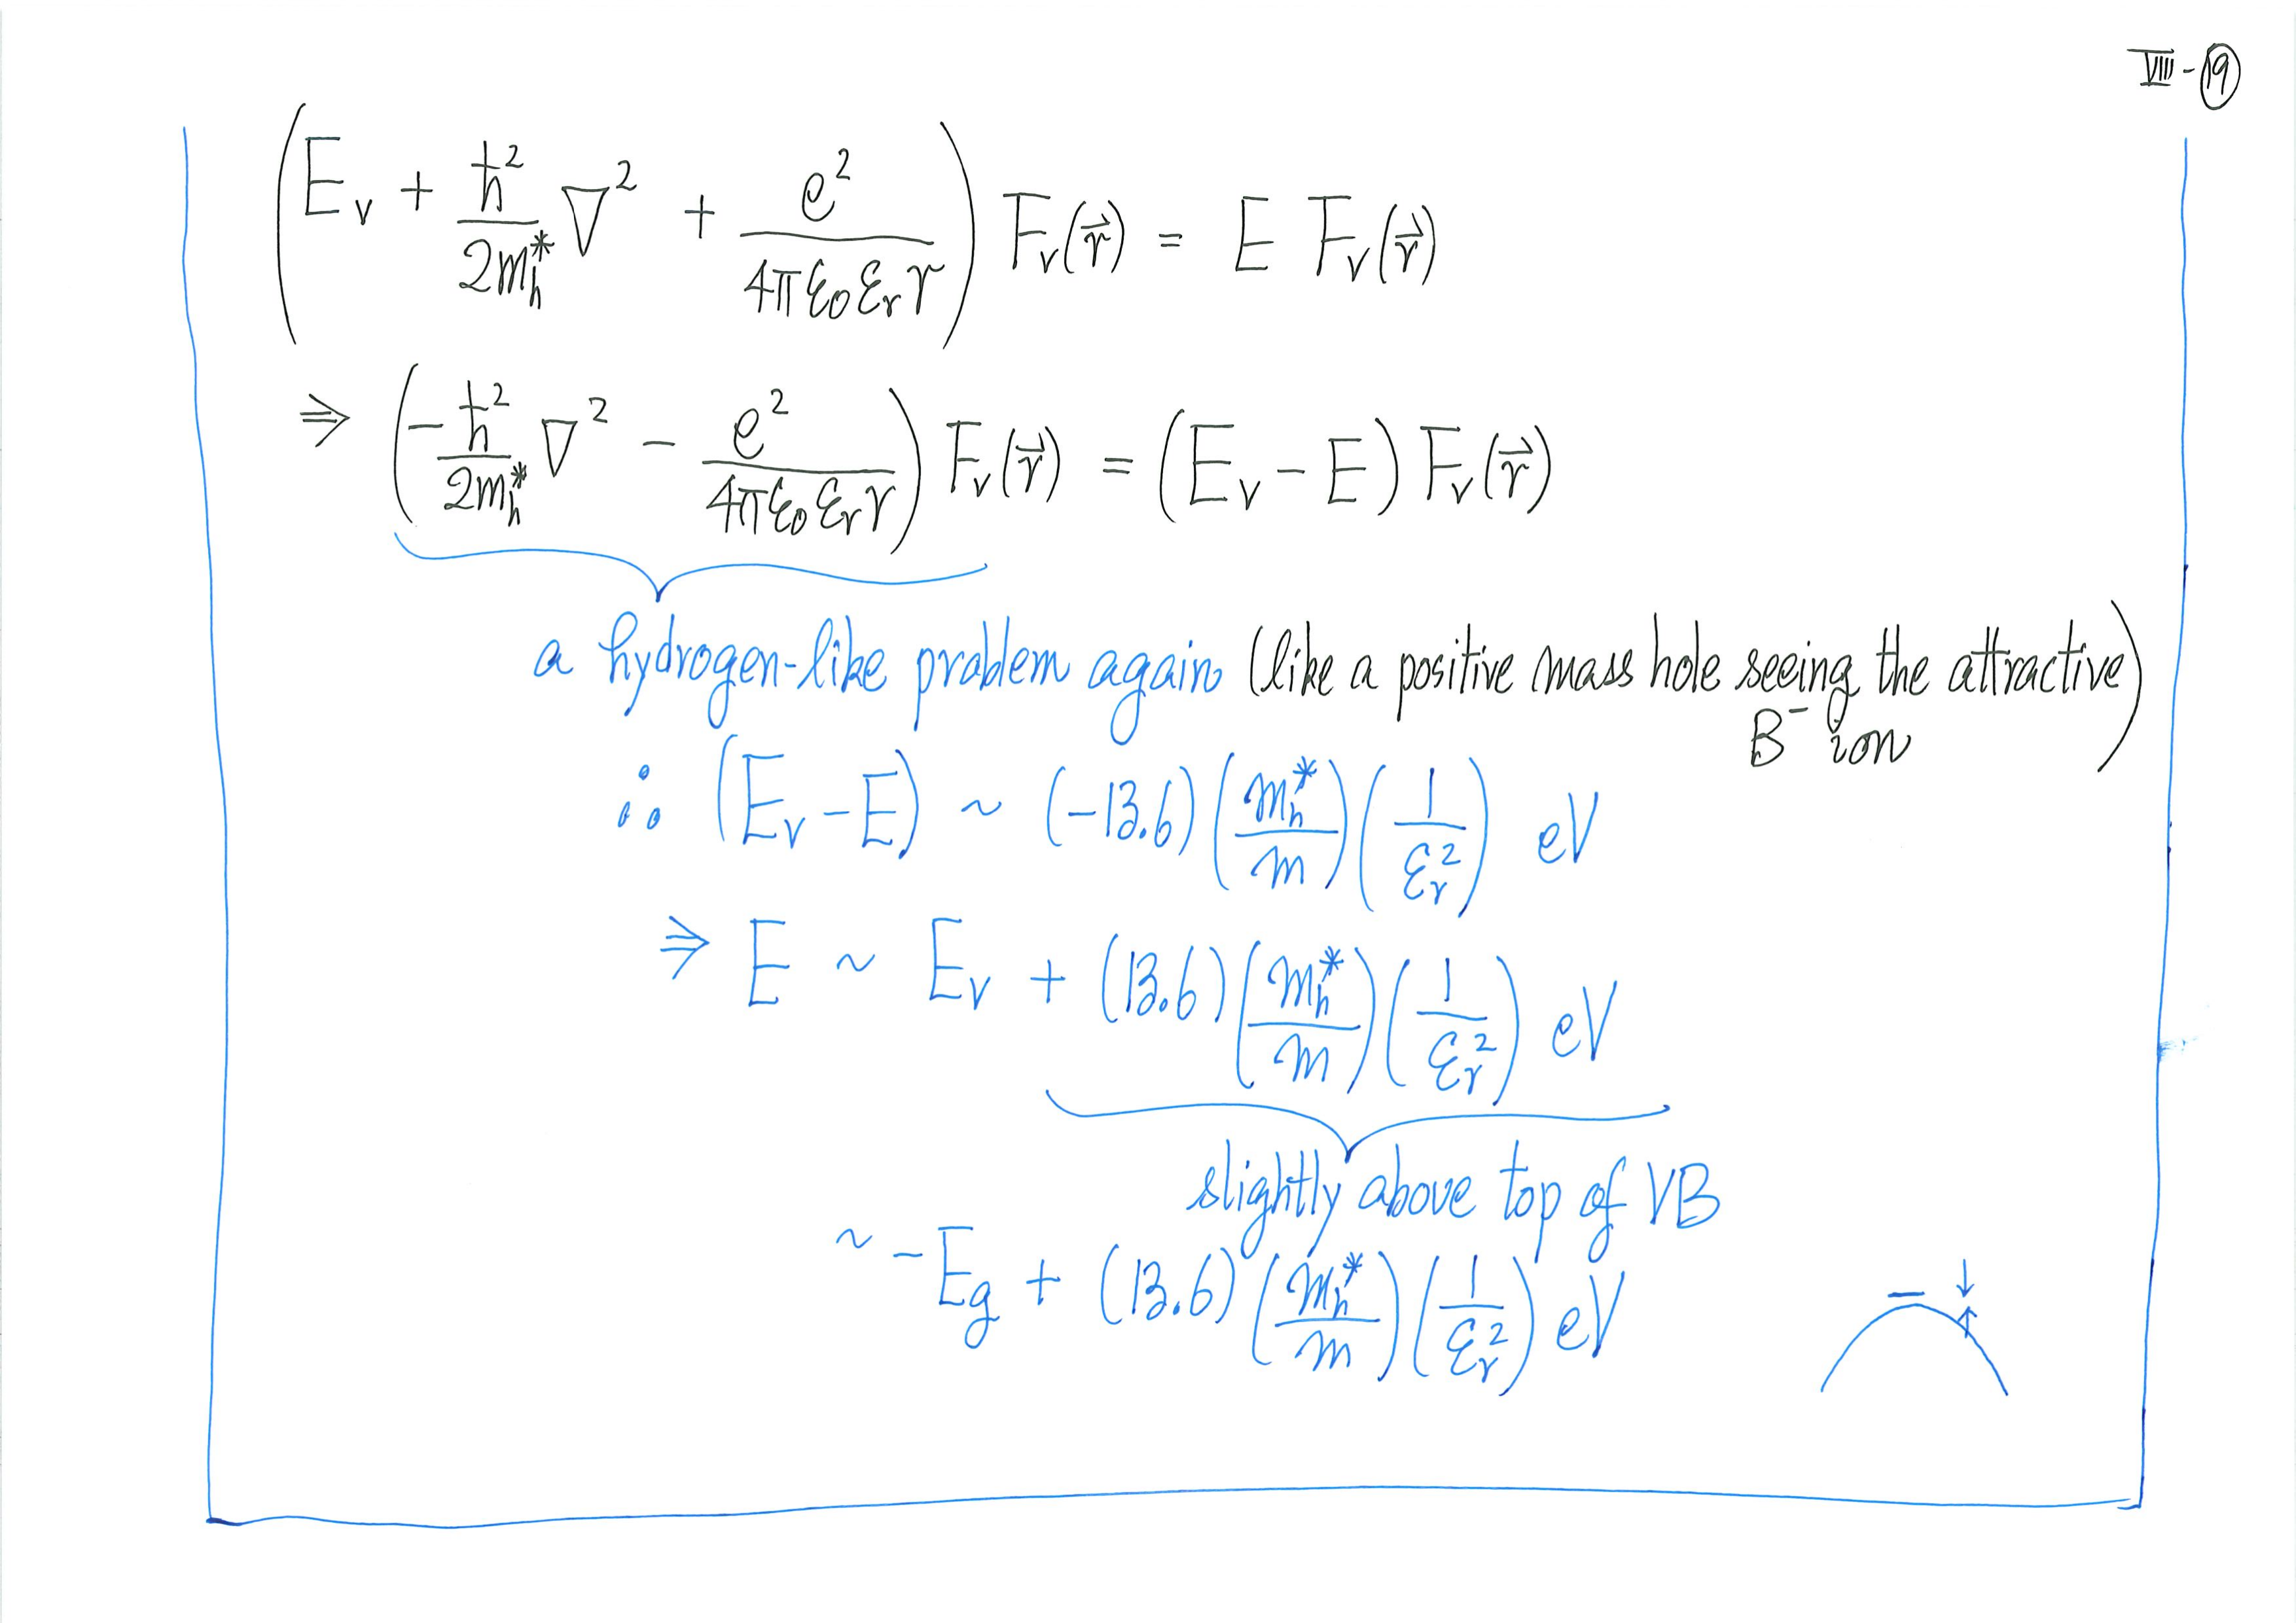 VIII-⑲
(E_v + ħ²/2m_h* ∇² + e²/4πε₀ε_r r) F_v(r⃗) = E F_v(r⃗)
⇒ (-ħ²/2m_h* ∇² - e²/4πε₀ε_r r) F_v(r⃗) = (E_v - E) F_v(r⃗)
a hydrogen-like problem again (like a positive mass hole seeing the attractive
B⁻ ion)
∴ (E_v - E) ~ (-13.6) (m_h*/m) (1/ε_r²) eV
⇒ E ~ E_v + (13.6) (m_h*/m) (1/ε_r²) eV
slightly above top of VB
~ -E_g + (13.6) (m_h*/m) (1/ε_r²) eV